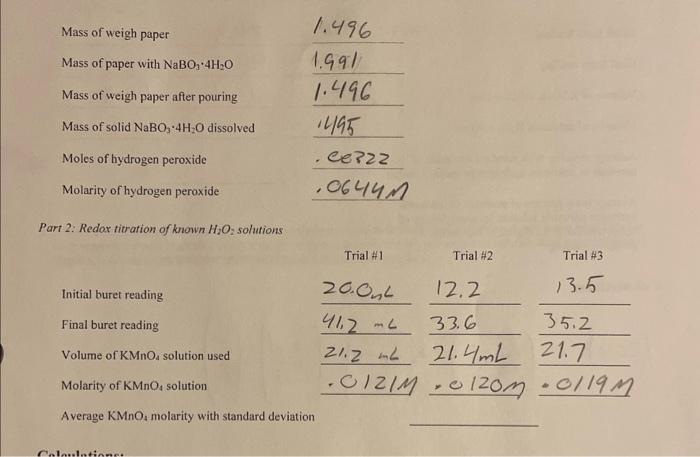 Mass of weigh paper 1.496
Mass of paper with NaBO₃·4H₂O 1.991
Mass of weigh paper after pouring 1.496
Mass of solid NaBO₃·4H₂O dissolved .495
Moles of hydrogen peroxide
Molarity of hydrogen peroxide .0644M
Part 2: Redox titration of known H₂O₂ solutions
Trial #1 Trial #2 Trial #3
Initial buret reading 20.0mL 12.2 13.5
Final buret reading 41.2 mL 33.6 35.2
Volume of KMnO₄ solution used 21.2 mL 21.4mL 21.7
Molarity of KMnO₄ solution .0121M .0120M .0119M
Average KMnO₄ molarity with standard deviation
Calculations: